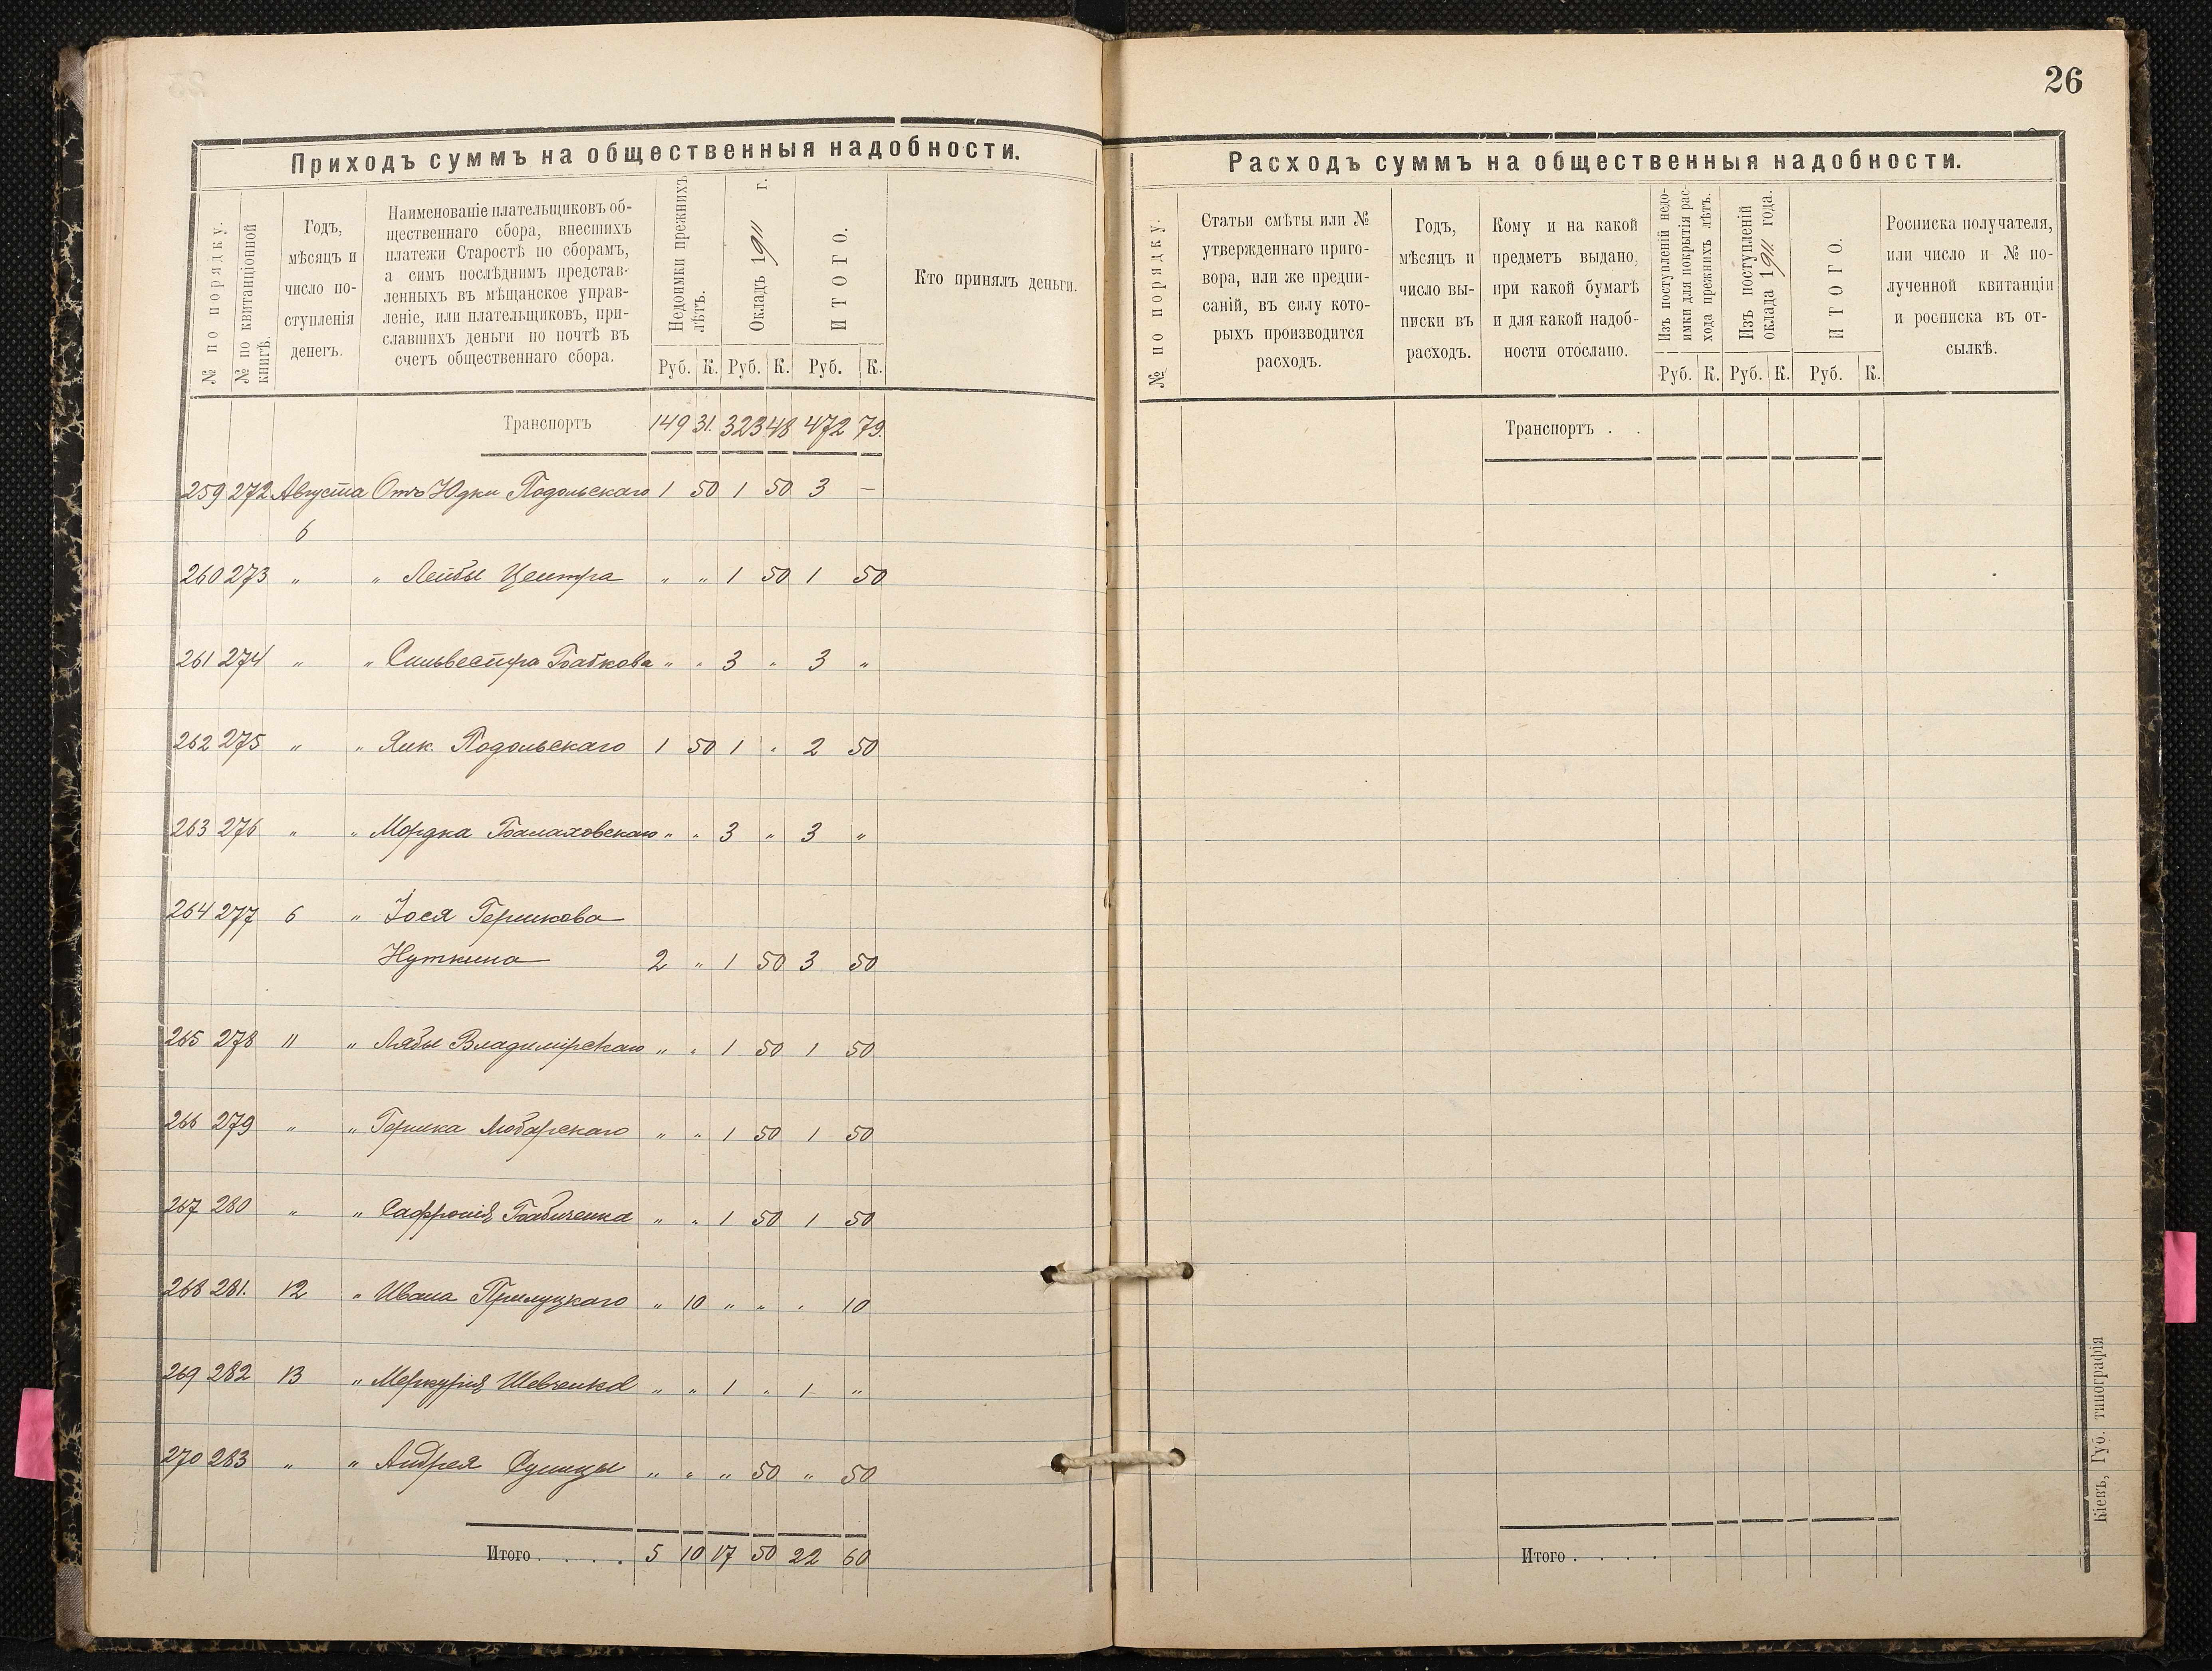 26
Приходъ суммъ на общественныя надобности.
№ по порядку.
№ по квитанціонной книгѣ.
Годъ,
мѣсяцъ и
число по-
ступленія
денегъ.
Наименованіе плательщиковъ об-
щественнаго сбора, внесшихъ
платежи Старостѣ по сборамъ,
а симъ послѣднимъ представ-
ленныхъ въ мѣщанское управ-
леніе, или плательщиковъ, при-
славшихъ деньги по почтѣ въ
счетъ общественнаго сбора.
Недоимки прежнихъ лѣтъ.
Окладъ 1911 г.
ИТОГО.
Руб. К. Руб. К. Руб. К.
Кто принялъ деньги.
Транспортъ 149 31. 323 48 472 79.
259 272 Августа Отъ Юдки Подольскаго 1 50 1 50 3 —
6
260 273 " " Лейбы Центра " " 1 50 1 50
261 274 " " Сильвестра Бабкова " " 3 " 3 "
262 275 " " Янк. Подольскаго 1 50 1 " 2 50
263 276 " " Мордка Балаховскаго " " 3 " 3 "
264 277 6 " Іося Гершкова
Нуткина 2 " 1 50 3 50
265 278 11 " Лябы Владимірскаго " " 1 50 1 50
266 279 " " Гершка Любарскаго " " 1 50 1 50
267 280 " " Сафронія Бабиченка " " 1 50 1 50
268 281. 12 " Ивана Прилуцкаго " 10 " " " 10
269 282 13 " Меркурія Шевченка " " 1 " 1 "
270 283 " " Андрея " " " 50 " 50
Итого . . . . 5 10 17 50 22 60
Расходъ суммъ на общественныя надобности.
№ по порядку.
Статьи смѣты или №
утвержденнаго приго-
вора, или же предпи-
саній, въ силу кото-
рыхъ производится
расходъ.
Годъ,
мѣсяцъ и
число вы-
писки въ
расходъ.
Кому и на какой
предметъ выдано,
при какой бумагѣ
и для какой надоб-
ности отослано.
Изъ поступленій недо-
имки для покрытія рас-
хода прежнихъ лѣтъ.
Изъ поступленій
оклада 1911 года.
ИТОГО.
Руб. К. Руб. К. Руб. К.
Росписка получателя,
или число и № по-
лученной квитанціи
и росписка въ от-
сылкѣ.
Транспортъ . .
Итого . . . .
Кіевъ, Губ. типографія